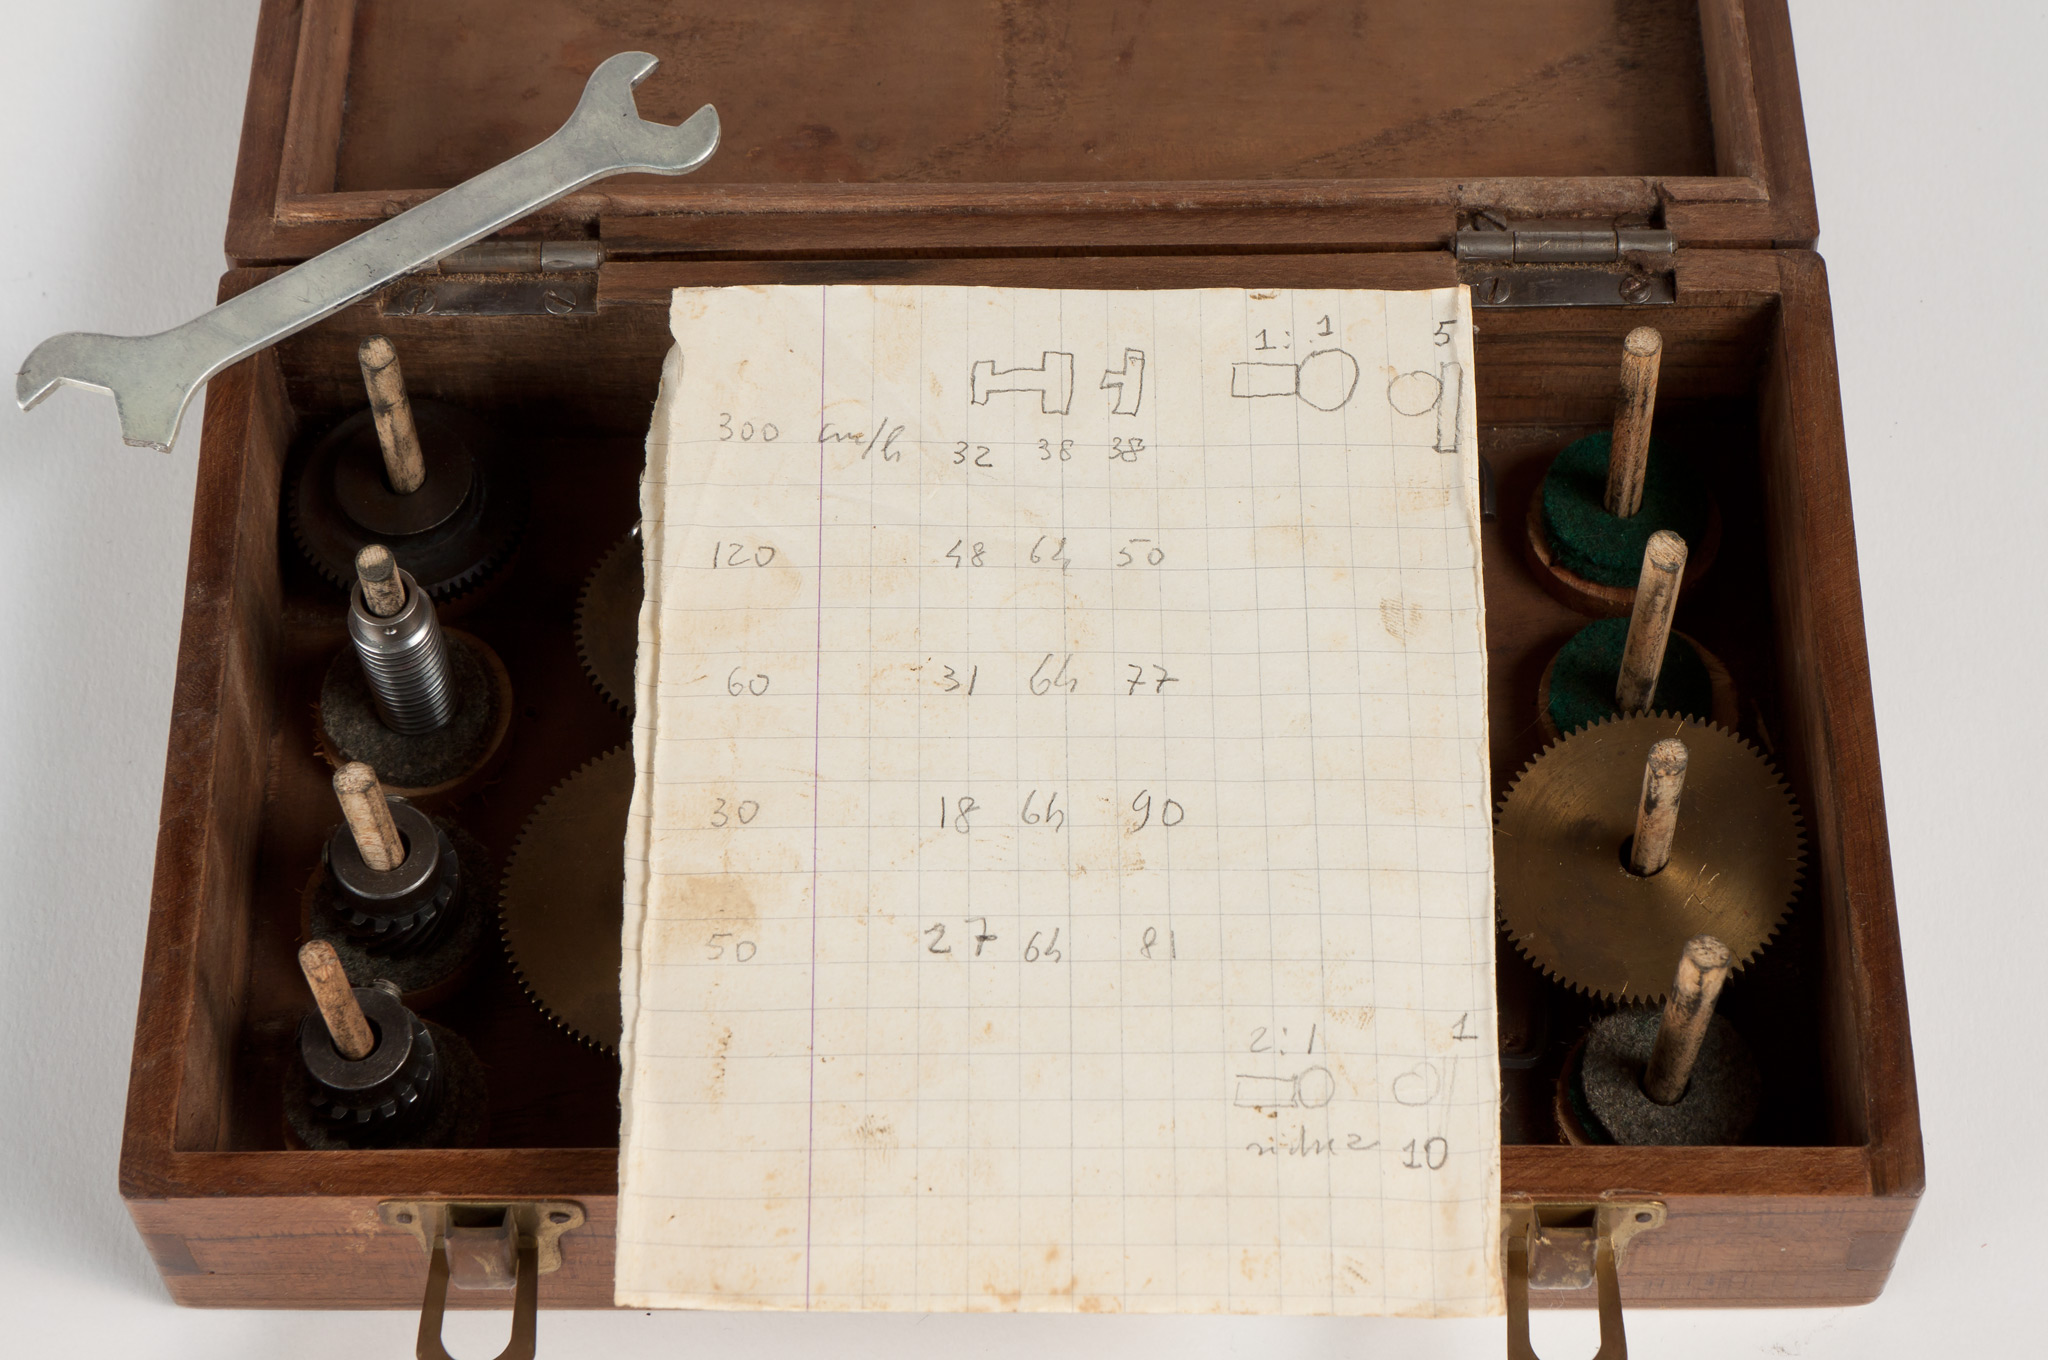 1:1 5
300 cm/h 32 38 38
120 48 64 50
60 31 64 77
30 18 64 90
50 27 64 81
2:1 1
10